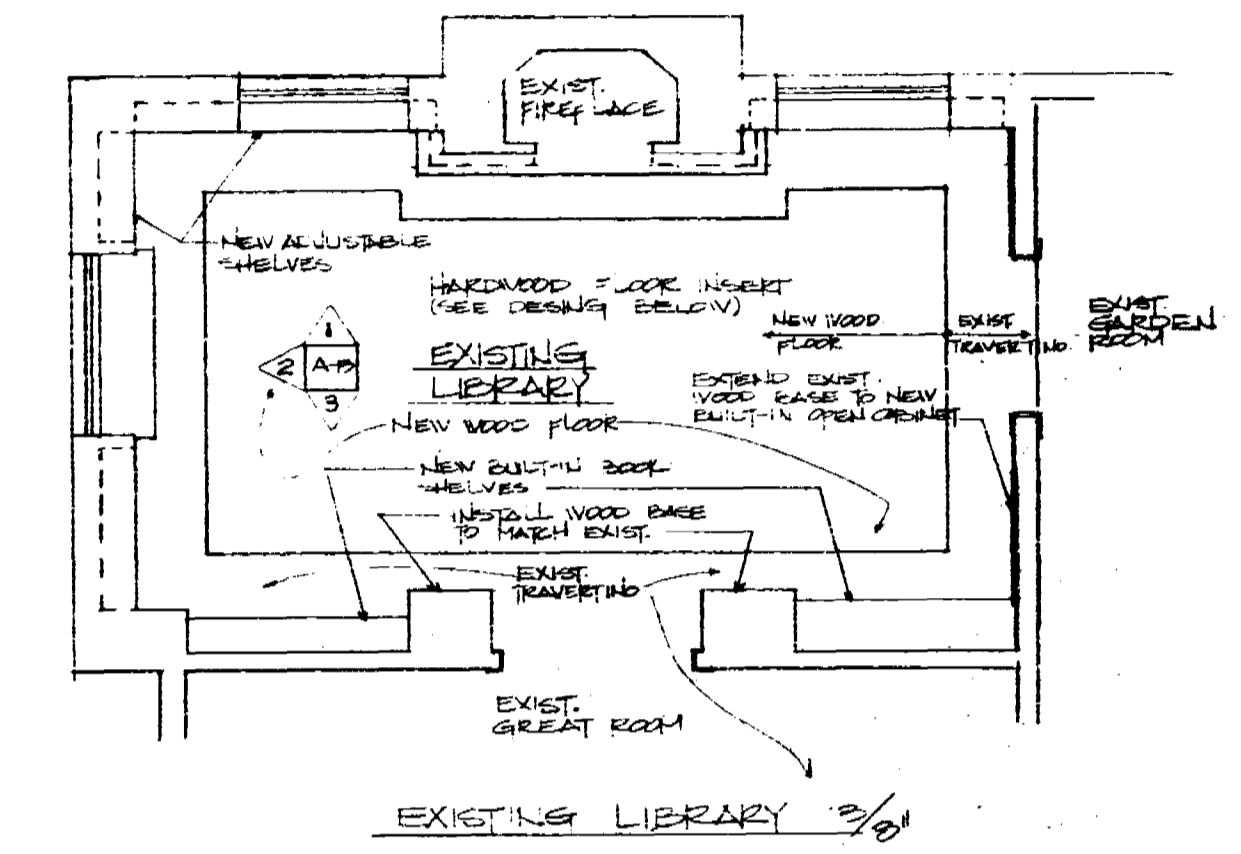 EXIST.
FIREPLACE
NEW ADJUSTABLE
SHELVES
HARDWOOD FLOOR INSERT
(SEE DESING BELOW)
NEW WOOD
FLOOR
EXIST
TRAVERTINO.
EXIST.
GARDEN
ROOM
1
2
A-13
3
EXISTING
LIBRARY
EXTEND EXIST.
WOOD BASE TO NEW
BUILT-IN OPEN CABINET
NEW WOOD FLOOR
NEW BUILT-IN BOOK
SHELVES
INSTALL WOOD BASE
TO MATCH EXIST.
EXIST.
TRAVERTINO
EXIST.
GREAT ROOM
EXISTING LIBRARY 3/8"